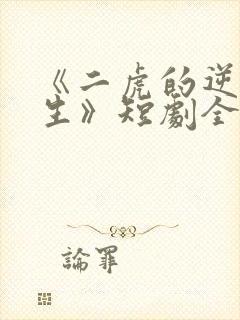 《二虎的逆
生》短劇全
論罪